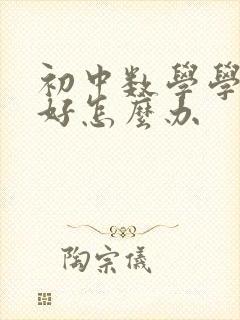 初中数學學
好怎麼办
陶宗儀